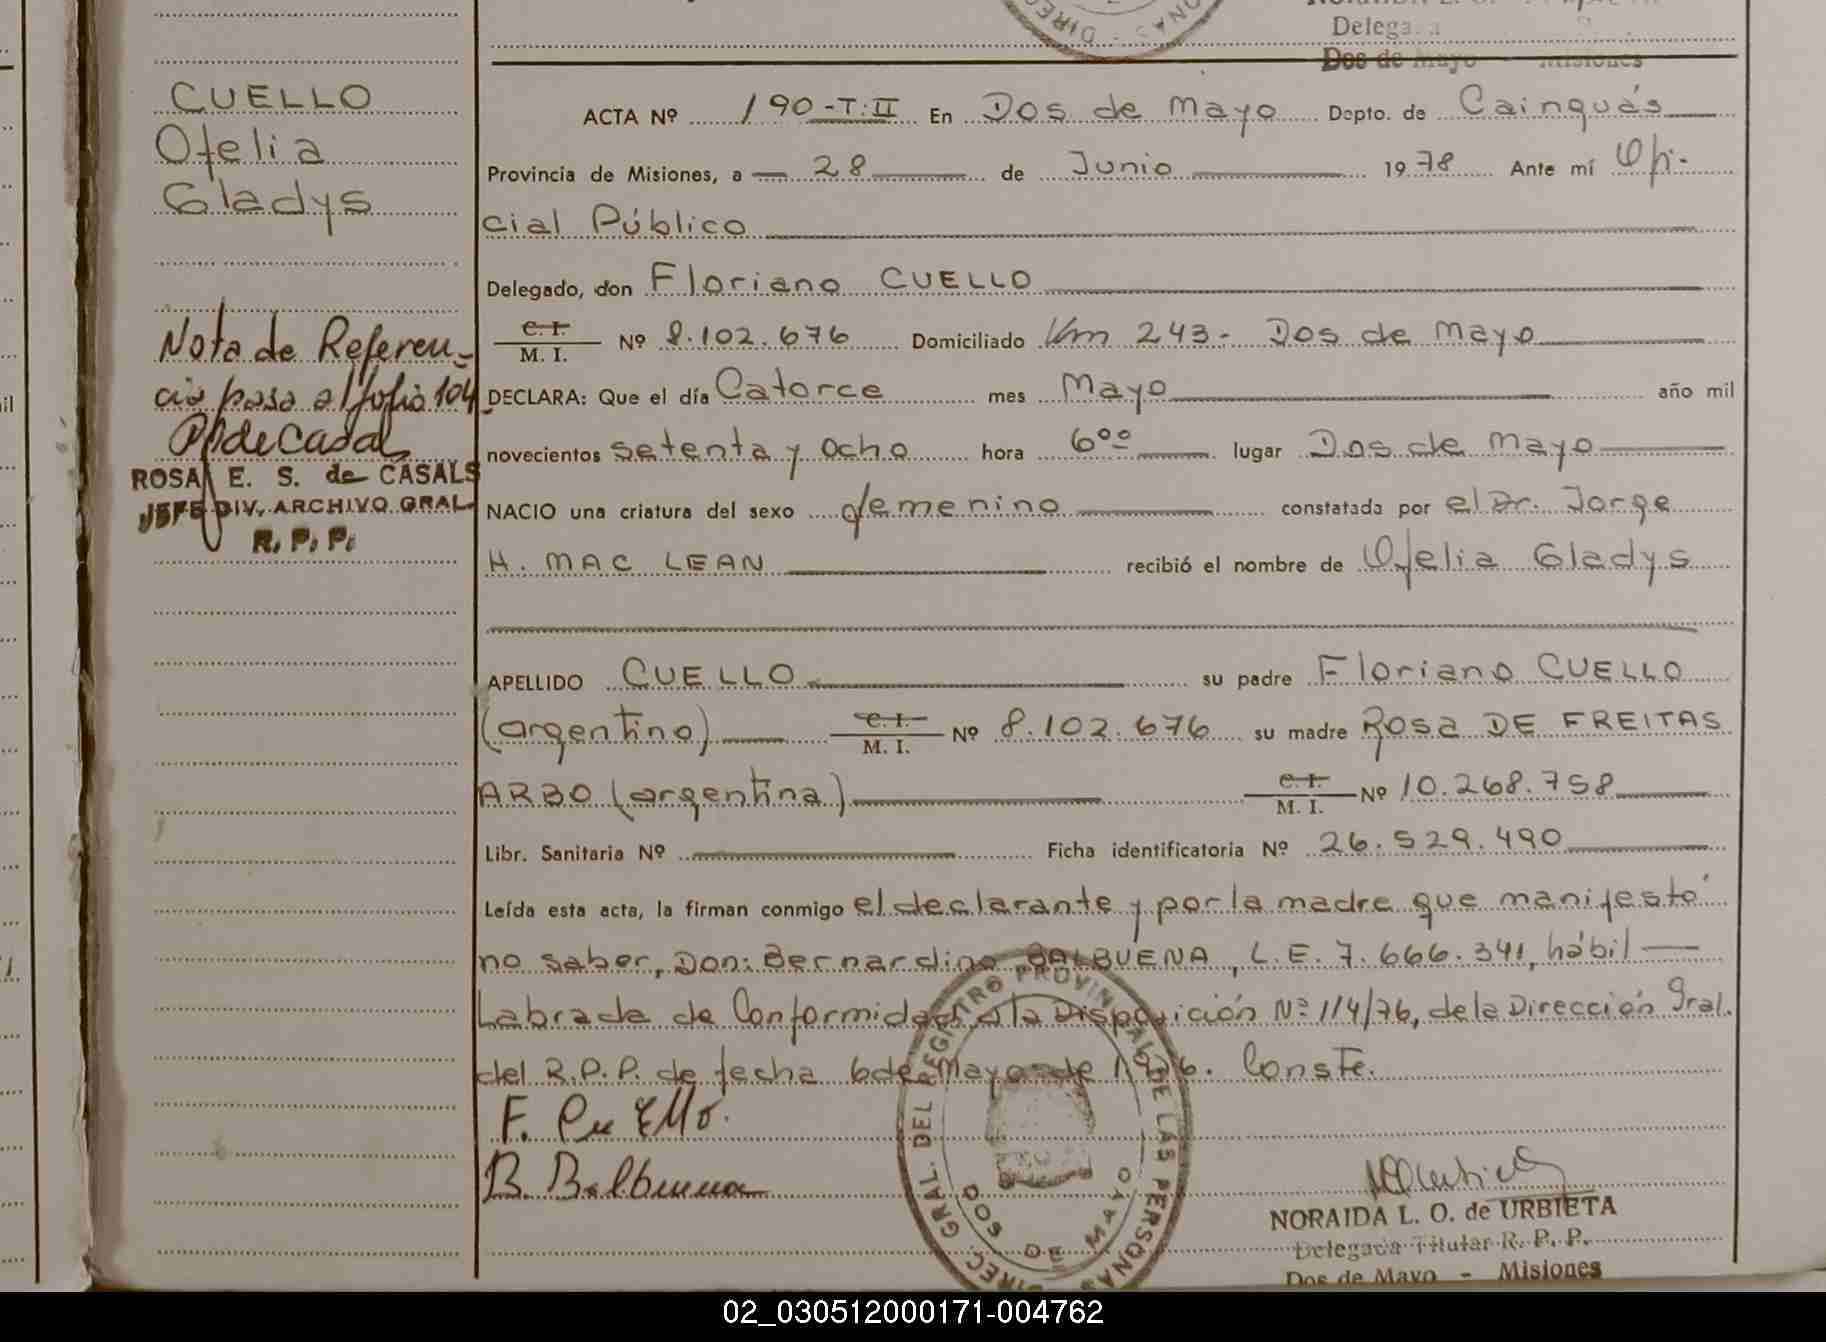 Delega
Dos de Mayo Misiones
CUELLO
Ofelia
Gladys
Nota de Referen-
cia pasa al folio 104
ROSA E. S. de CASALS
JEFE DIV. ARCHIVO GRAL
R. P. P.
ACTA Nº 190-T:II En Dos de Mayo Depto. de Cainguás
Provincia de Misiones, a 28 de Junio 1978 Ante mí Ofi-
cial Público
Delegado, don Floriano CUELLO
C. I. / M. I. Nº 8.102.676 Domiciliado Km 243- Dos de Mayo
DECLARA: Que el día Catorce mes Mayo año mil
novecientos setenta y ocho hora 6⁰⁰ lugar Dos de Mayo
NACIO una criatura del sexo femenino constatada por el Dr. Jorge
H. MAC LEAN recibió el nombre de Ofelia Gladys
APELLIDO CUELLO su padre Floriano CUELLO
(argentino) C. I. / M. I. Nº 8.102.676 su madre Rosa DE FREITAS
ARBO (argentina) C. I. / M. I. Nº 10.268.758
Libr. Sanitaria Nº Ficha identificatoria Nº 26.529.490
Leída esta acta, la firman conmigo el declarante y por la madre que manifestó
no saber, Don: Bernardino BALBUENA, L.E. 7.666.341, hábil
Labrada de Conformidad a la Disposición Nº 114/76, de la Dirección Gral.
del R.P.P. de fecha 6 de Mayo de 1.976. Conste.
F. Cuello.
B. Balbuena
DIREC. GRAL. DEL REGISTRO PROVINCIAL DE LAS PERSONAS
DOS DE MAYO
NORAIDA L. O. de URBIETA
Delegada Titular R. P. P.
Dos de Mayo - Misiones
02_030512000171-004762